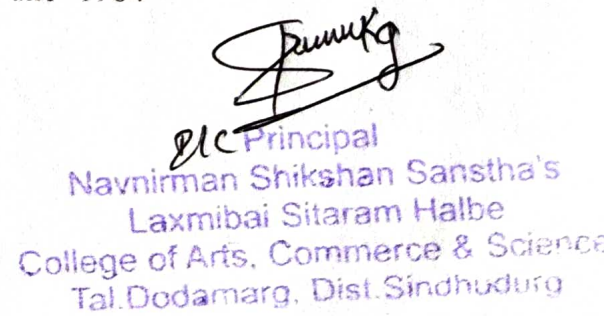 I/C Principal
Navnirman Shikshan Sanstha's
Laxmibai Sitaram Halbe
College of Arts, Commerce & Science
Tal.Dodamarg, Dist.Sindhudurg